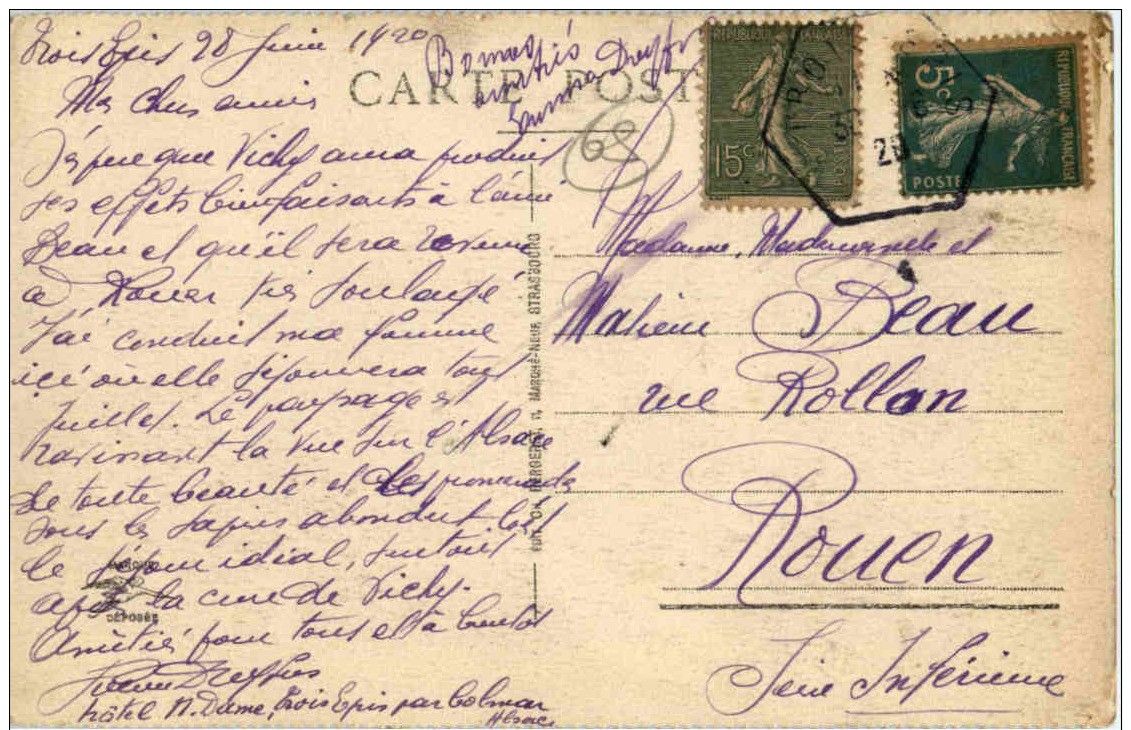 Trois Epis 28 Juin 1920
Mes chers amis
J'espère que Vichy aura produit
ses effets bienfaisants à l'ami
Beau et qu'il sera revenu
à Rouen très soulagé
J'ai conduit ma femme
ici où elle séjournera tout
Juillet. Le paysage est
ravissant la vue sur l'Alsace
de toute beauté et les promenades
sous les sapins abondent. C'est
le séjour idéal, surtout
après la cure de Vichy.
Amitiés pour tous et à bientôt
Dreyfus
hôtel N. Dame, Trois Epis par Colmar
Alsace
Bonnes
amitiés
Dreyfus
CARTE POST
68
REPUBLIQUE
15c
POSTES
5c
REPUBLIQUE FRANÇAISE
POSTES
28
Madame, Mademoiselle et
Monsieur Beau
rue Rollon
Rouen
Seine Inférieure
MARQUE
DÉPOSÉE
EDITION BERGERET, MARCHÉ-NEUF STRASBOURG